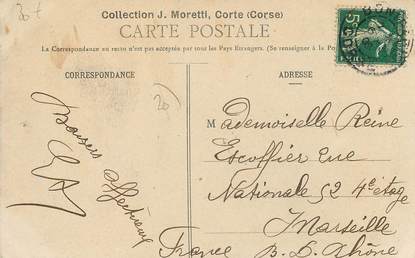 Collection J. Moretti, Corte (Corse)
CARTE POSTALE
La Correspondance au recto n'est pas acceptée par tous les Pays Etrangers. (Se renseigner à la Po
CORRESPONDANCE
ADRESSE
Baisers affectueux
Mademoiselle Reine
Escoffier rue
Nationale 52 4e étage
Marseille
France B. D. Rhône
20
5c